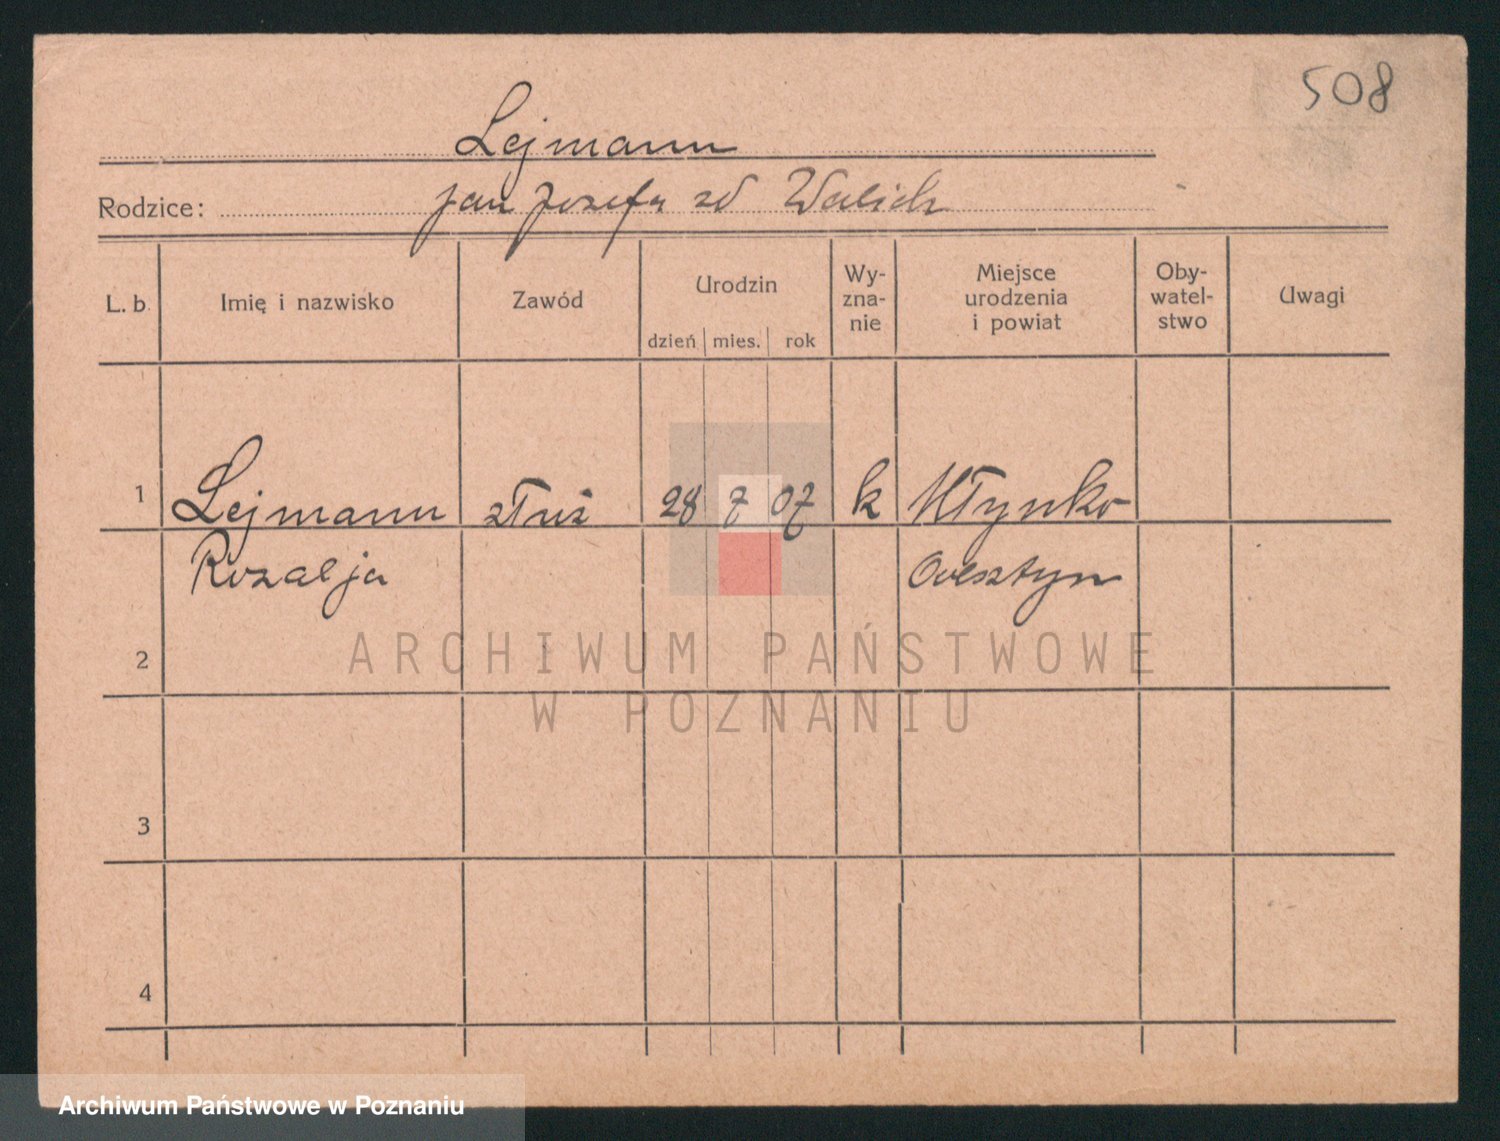 508
Lejmann
Rodzice: Jan Jozefa zd Walich
L. b. Imię i nazwisko Zawód Urodzin Wy-zna-nie Miejsce urodzenia i powiat Oby-watel-stwo Uwagi
dzień mies. rok
1 Lejmann służ 28 7 07 k Młynko
Rozalja
2
3
4
ARCHIWUM PAŃSTWOWE
W POZNANIU
Archiwum Państwowe w Poznaniu